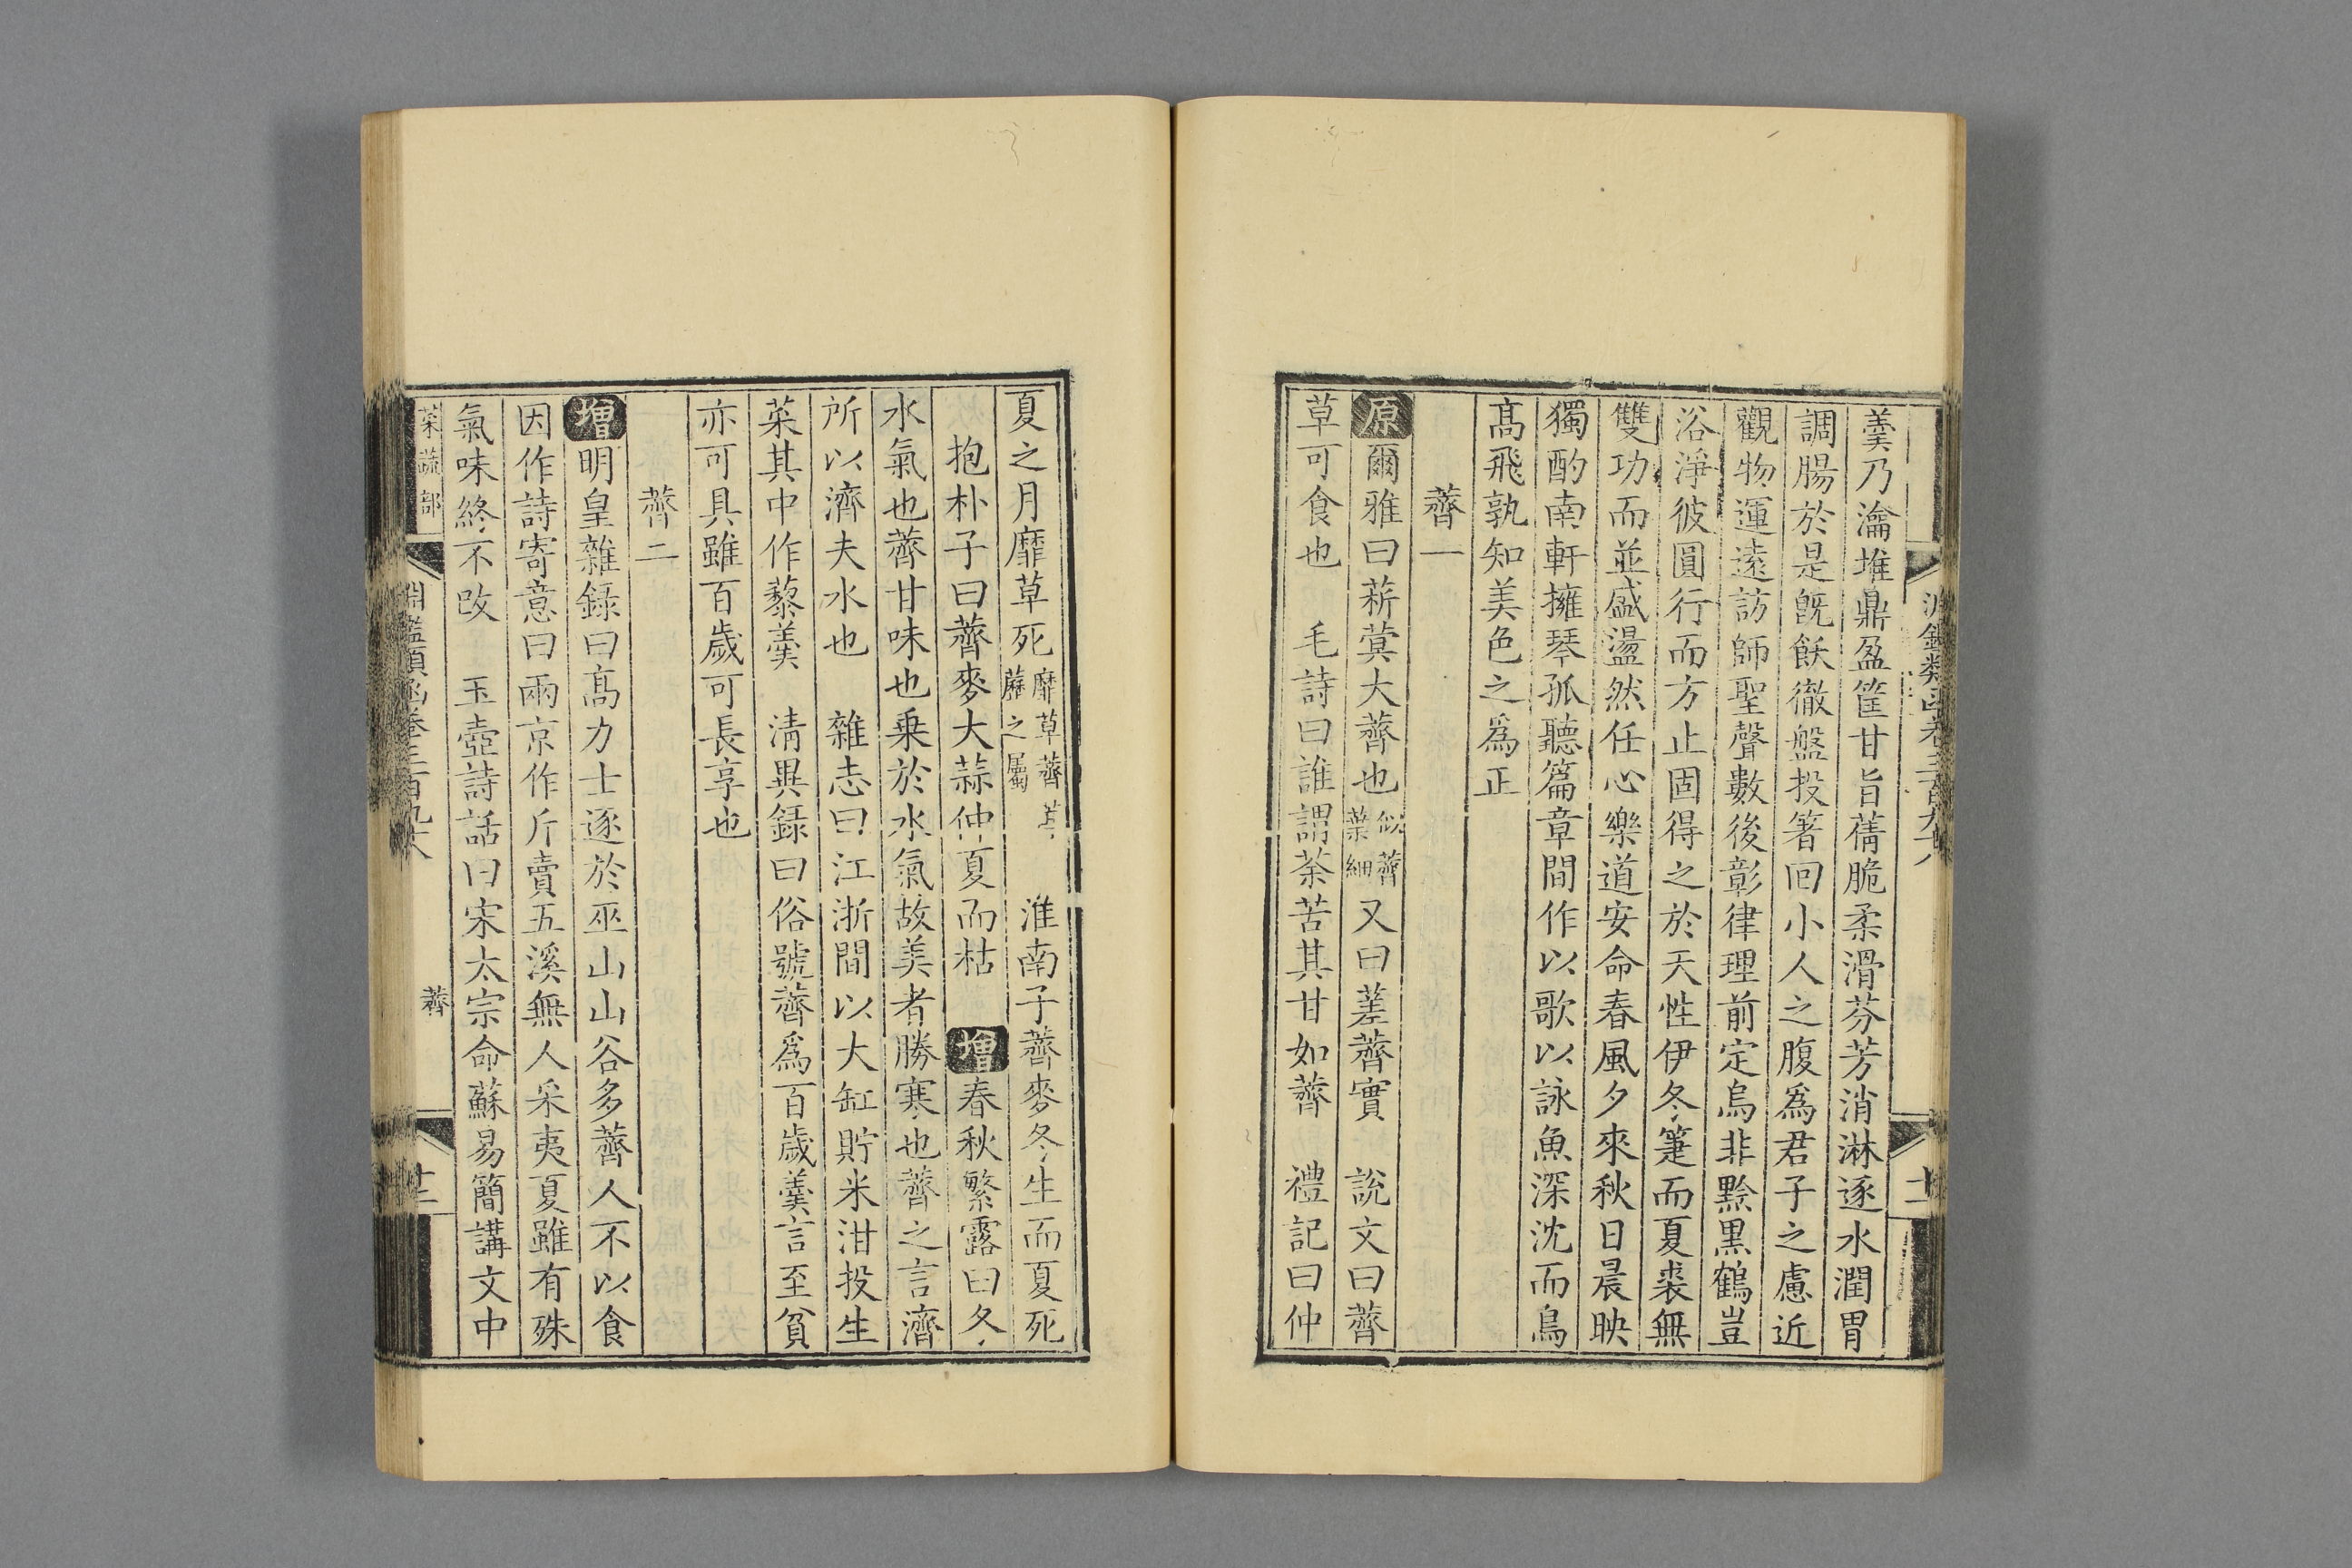 羹乃瀹堆鼎盈筐甘旨蒨脆柔滑芬芳消淋逐水潤胃
調腸於是旣飫徹盤投箸回小人之腹爲君子之慮近
觀物運遠訪師聖聲數後彰律理前定烏非黔黒鶴豈
浴淨彼圓行而方止固得之於天性伊冬箑而夏裘無
雙功而並盛盪然任心樂道安命春風夕來秋日晨映
獨酌南軒擁琴孤聽篇章間作以歌以詠魚深沈而鳥
髙飛孰知美色之爲正
薺一
原爾雅曰菥蓂大薺也似薺葉細又曰蒫薺實 說文曰薺
草可食也 毛詩曰誰謂荼苦其甘如薺 禮記曰仲
夏之月靡草死靡草薺葶藶之屬 淮南子薺麥冬生而夏死
抱朴子曰薺麥大蒜仲夏而枯 增春秋繁露曰冬
水氣也薺甘味也乗於水氣故美者勝寒也薺之言濟
所以濟夫水也 雜志曰江浙間以大缸貯米泔投生
菜其中作藜羹 清異録曰俗號薺爲百歲羹言至貧
亦可具雖百歲可長享也
薺二
增明皇雜錄曰髙力士逐於巫山山谷多薺人不以食
因作詩寄意曰兩京作斤賣五溪無人采夷夏雖有殊
氣味終不改 玉壺詩話曰宋太宗命蘇易簡講文中
菜蔬部
淵鑑類函卷三百九十八
薺